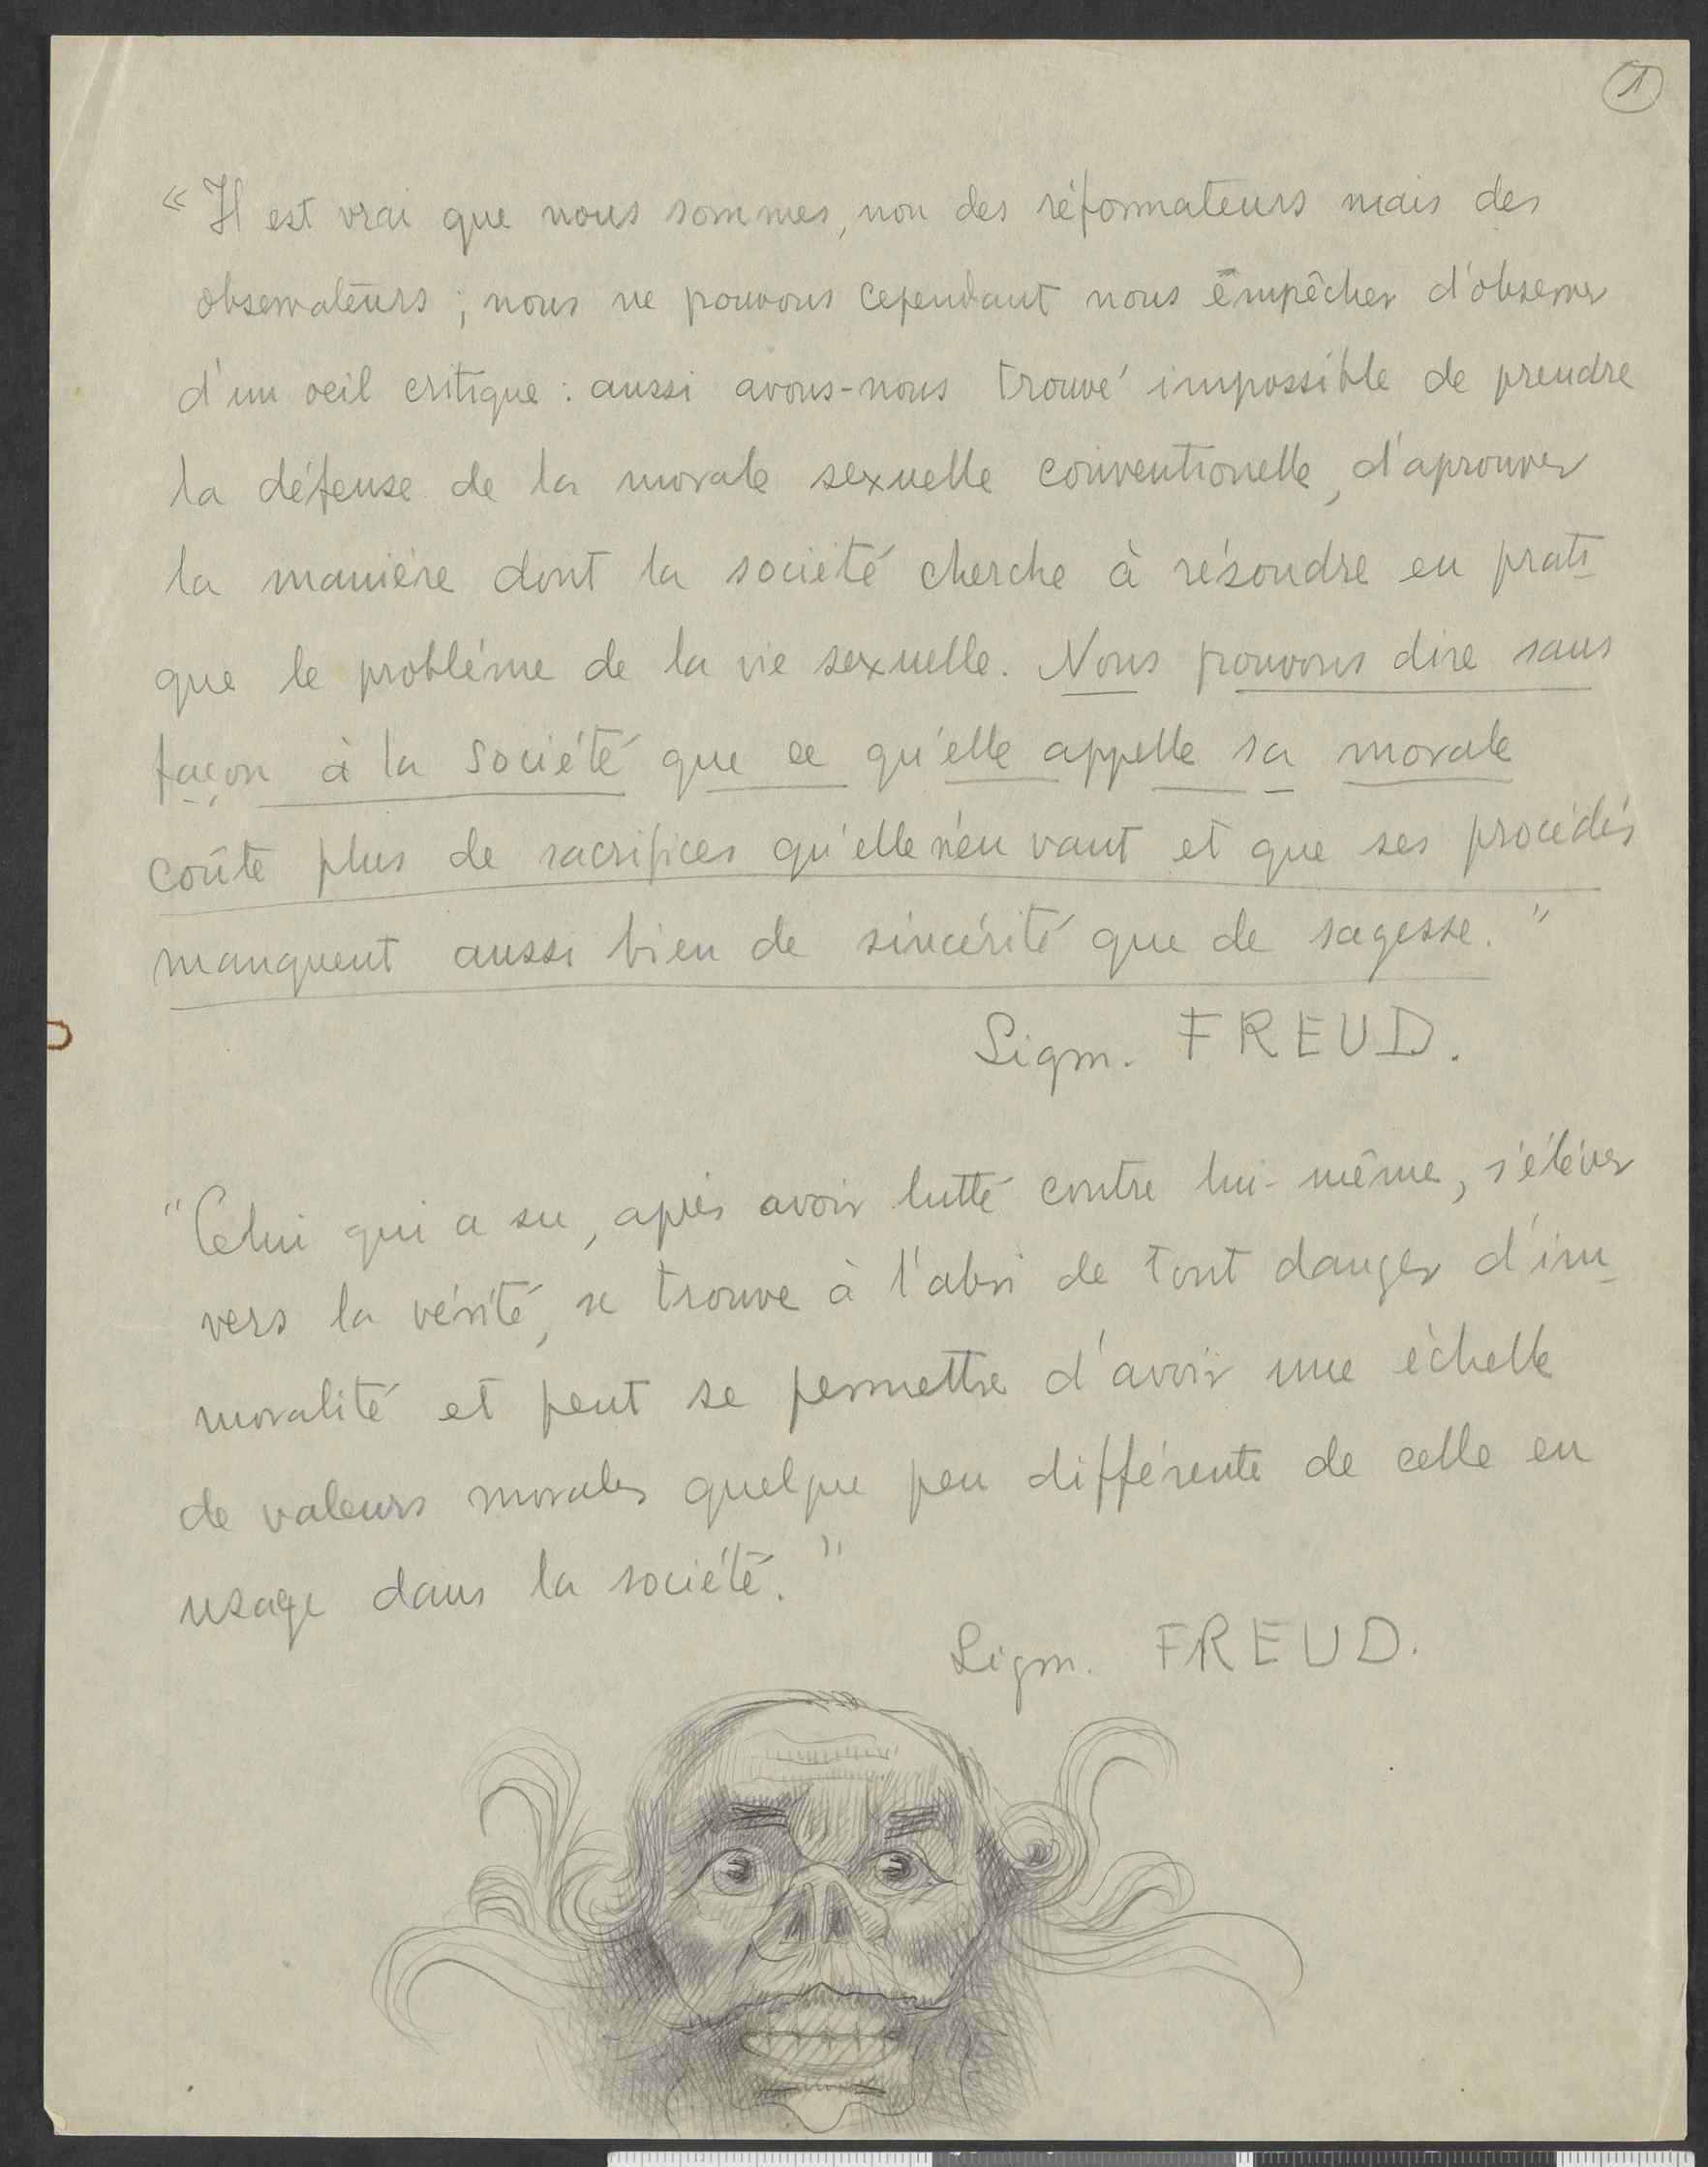 1
« Il est vrai que nous sommes, non des réformateurs mais des
observateurs ; nous ne pouvons cependant nous empêcher d'observer
d'un oeil critique : aussi avons-nous trouvé impossible de prendre
la défense de la morale sexuelle conventionelle, d'aprouver
la manière dont la société cherche à résoudre en prati-
que le probléme de la vie sexuelle. Nous pouvons dire sans
façon à la société que ce qu'elle appelle sa morale
coûte plus de sacrifices qu'elle n'en vaut et que ses procédés
manquent aussi bien de sincérité que de sagesse. "
Sigm. FREUD.
"Celui qui a su, après avoir lutté contre lui-même, s'éléver
vers la vérité, se trouve à l'abri de tout danger d'im-
moralité et peut se permettre d'avoir une échelle
de valeurs morales quelque peu différente de celle en
usage dans la société. "
Sigm. FREUD.